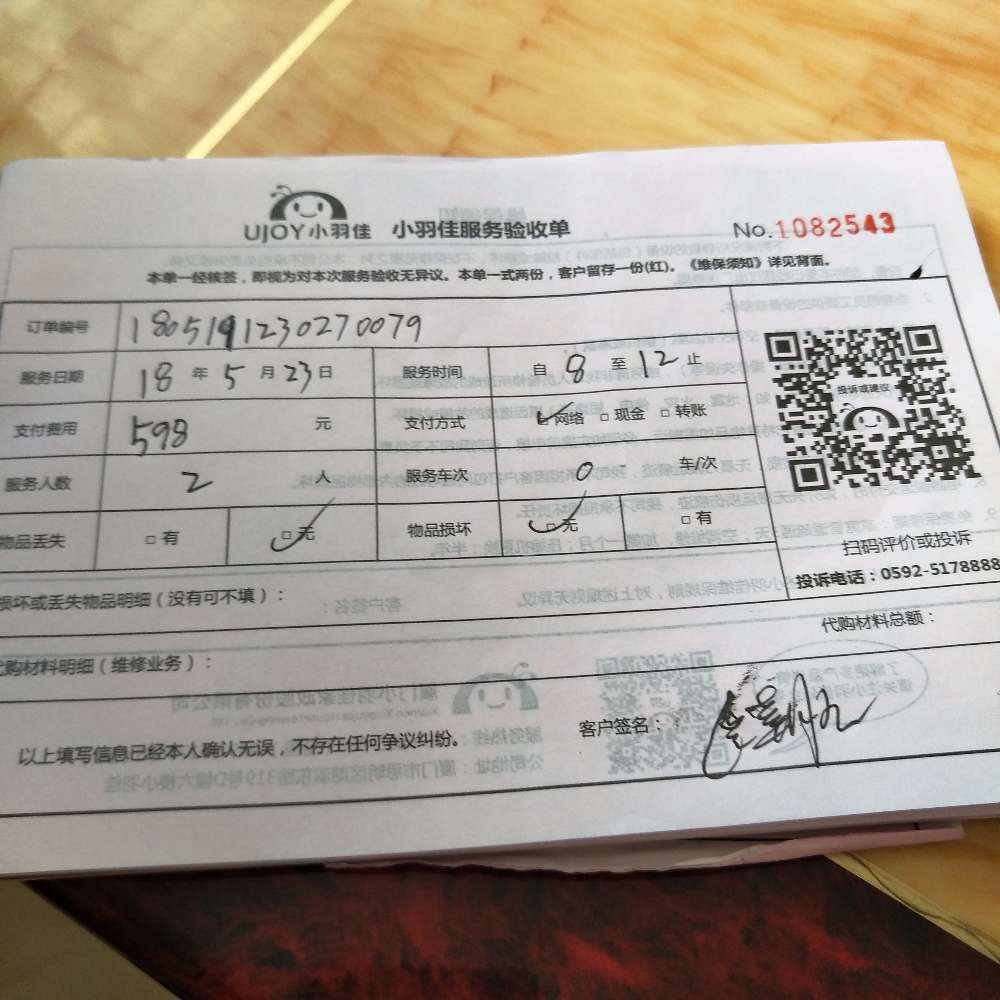 UJOY小羽佳 小羽佳服务验收单 No.1082543
本单一经核签，即视为对本次服务验收无异议。本单一式两份，客户留存一份(红)。《维保须知》详见背面。
订单编号 1805191230270079
服务日期 18 年 5 月 23 日 服务时间 自 8 至 12 止
支付费用 598 元 支付方式 ☑网络 □现金 □转账
服务人数 2 人 服务车次 0 车/次
物品丢失 □有 ☑无 物品损坏 ☑无 □有
投诉或建议
扫码评价或投诉
投诉电话：0592-5178888
损坏或丢失物品明细（没有可不填）：
代购材料明细（维修业务）： 代购材料总额：
以上填写信息已经本人确认无误，不存在任何争议纠纷。 客户签名：